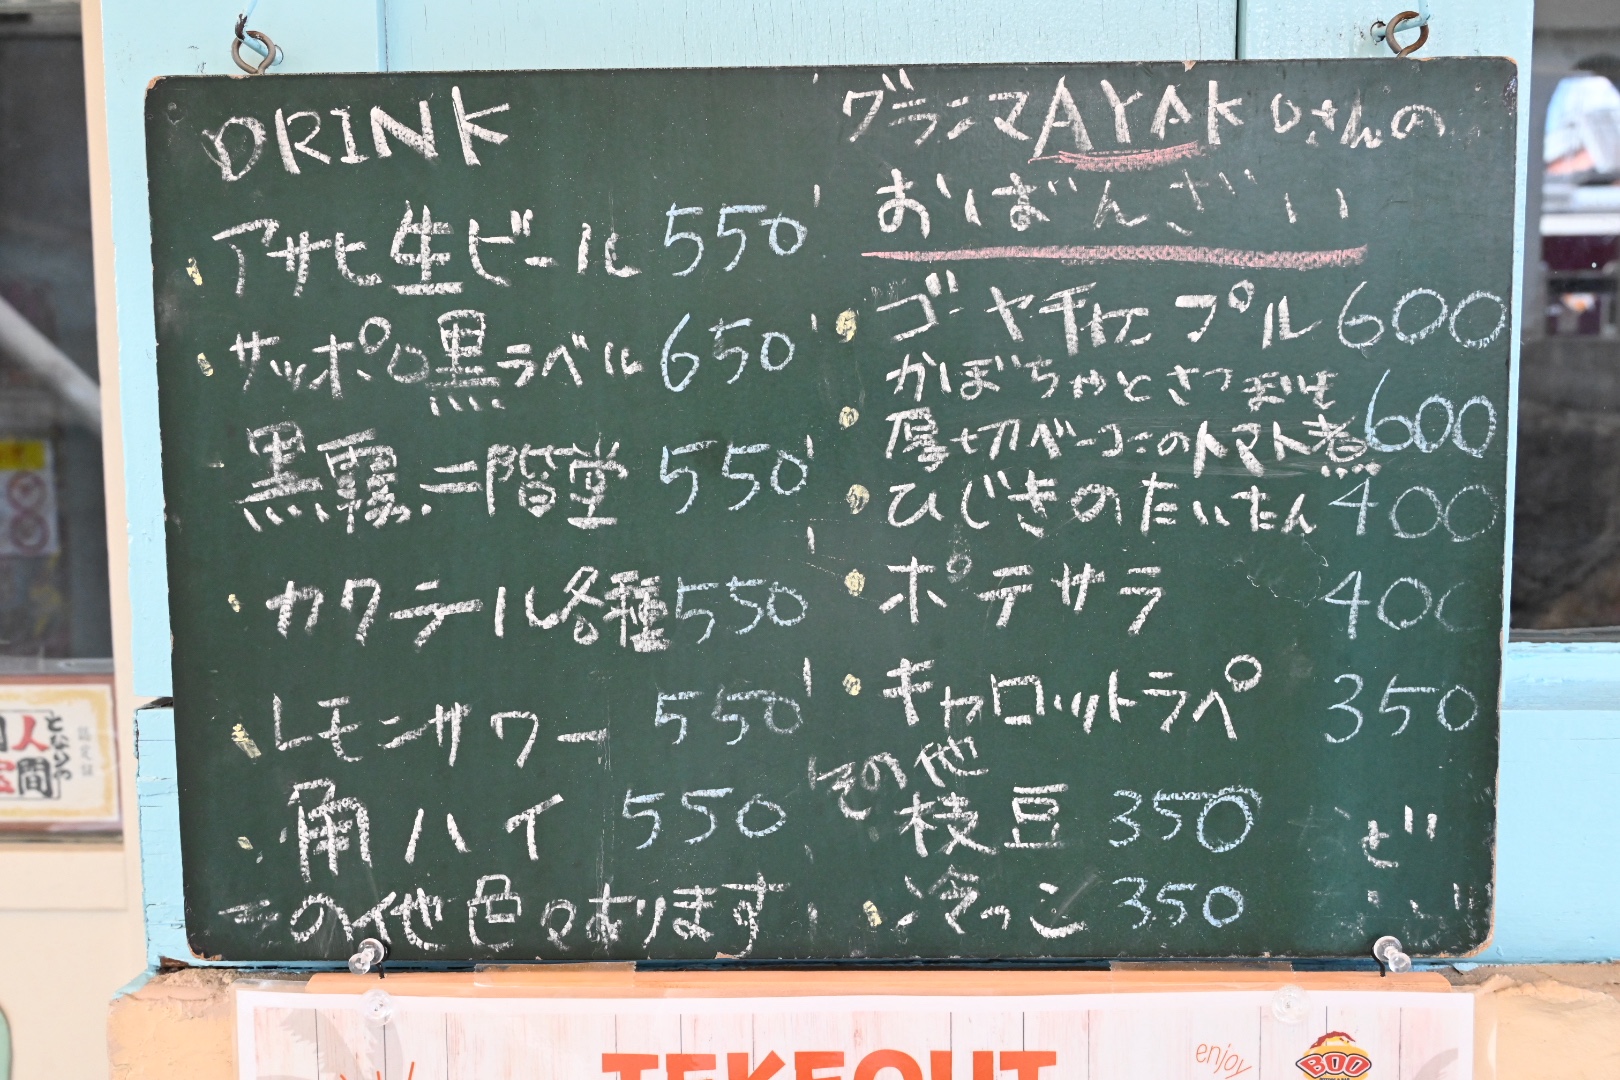 DRINK
・アサヒ生ビール 550
・サッポロ黒ラベル 650
・黒霧.二階堂 550
・カクテル各種 550
・レモンサワー 550
・角ハイ 550
その他色々あります
グランマAYAKOさんの
おばんざい
・ゴーヤチャンプル 600
・かぼちゃとさつまいも
厚切ベーコンのトマト煮 600
・ひじきのたいたん 400
・ポテサラ 400
・キャロットラペ 350
その他
・枝豆 350
・冷やっこ 350
TEKEOUT
enjoy
BOO